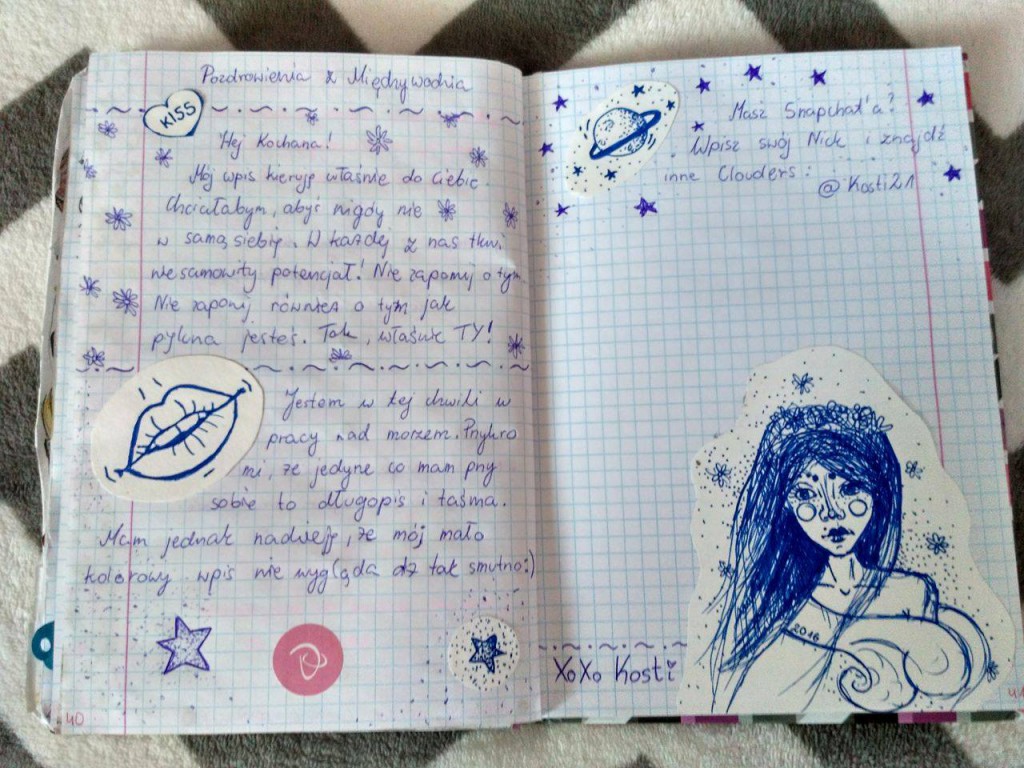 Pozdrowienia z Międzywodzia
KISS
Hej Kochana!
Mój wpis kieruję właśnie do Ciebie.
Chciałabym, abyś nigdy nie
w samą siebie. W każdej z nas tkwi
niesamowity potencjał! Nie zapomnij o tym.
Nie zaponij również o tym jak
piękna jesteś. Tak, właśnie TY!
Jestem w tej chwili w
pracy nad morzem. Przykro
mi, że jedyne co mam przy
sobie to długopis i taśma.
Mam jednak nadzieję, że mój mało
kolorowy wpis nie wygląda aż tak smutno:)
40
Masz Snapchat'a?
Wpisz swój Nick i znajdź
inne Clouders:
@Kosti21
2016
XoXo Kosti